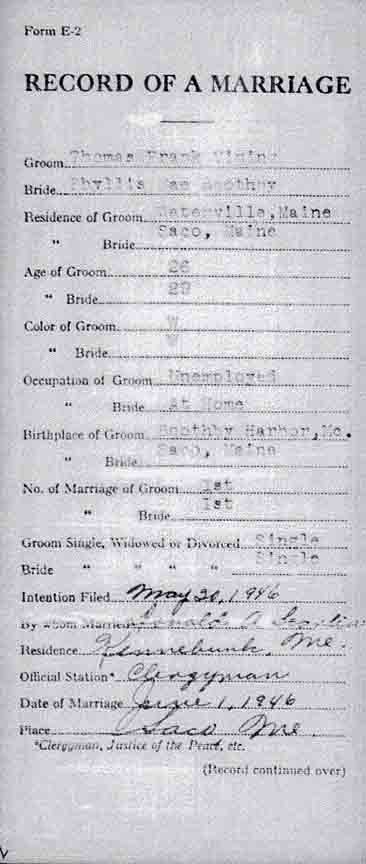 Form E-2
RECORD OF A MARRIAGE
Groom Thomas Frank Vining
Bride Phyllis Mae
Residence of Groom Waterville, Maine
" Bride Saco, Maine
Age of Groom 26
" Bride 29
Color of Groom W
" Bride W
Occupation of Groom Unemployed
" Bride At Home
Birthplace of Groom Boothby Harbor, Me.
" Bride Saco, Maine
No. of Marriage of Groom 1st
" Bride 1st
Groom Single, Widowed or Divorced Single
Bride " " " " Single
Intention Filed May 20, 1946
By whom Married A
Residence Kennebunk, Me.
Official Station* Clergyman
Date of Marriage June 1, 1946
Place Saco Me.
*Clergyman, Justice of the Peace, etc.
(Record continued over)